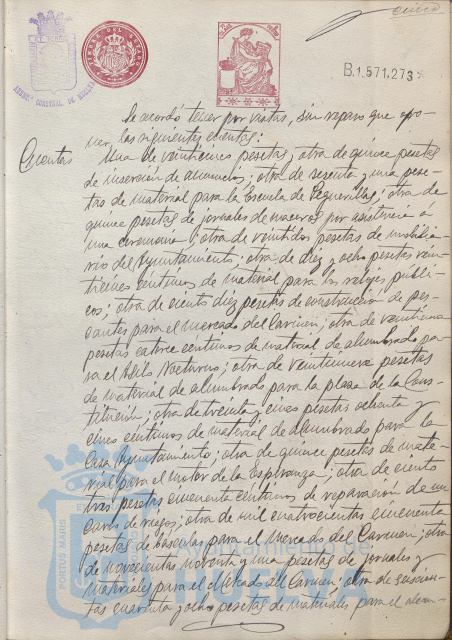 cinco
B.1.571.273
Se acordó tener por vistas, sin reparo que opo-
ner, las siguientes cuentas:
Cuentas
Una de veinticinco pesetas, otra de quince pesetas
de inserción de anuncios; otra de sesenta y una pese-
tas de material para la Escuela de Peguerillas; otra de
quince pesetas de jornales de maceros por asistencia a
una ceremonia; otra de veintidós pesetas de mobilia-
rio del Ayuntamiento; otra de diez y ocho pesetas vein-
ticinco céntimos de material para los relojes públi-
cos; otra de ciento diez pesetas de construcción de pes-
cantes para el mercado del Carmen; otra de veintiuna
pesetas catorce céntimos de material de alumbrado pa-
ra el Asilo Nocturno; otra de veintinueve pesetas
de material de alumbrado para la plaza de la Cons-
titución; otra de treinta y cinco pesetas ochenta y
cinco céntimos de material de alumbrado para la
Casa Ayuntamiento; otra de quince pesetas de mate-
rial para el motor de la Esperanza; otra de ciento
tres pesetas cincuenta céntimos de reparación de un
carro de riegos; otra de mil cuatrocientas cincuenta
pesetas de básculas para el Mercado del Carmen; otra
de novecientas noventa y una pesetas de jornales y
materiales para el Mercado del Carmen; otra de seiscien-
tas cuarenta y ocho pesetas de materiales para el
PORTUS MARIS
Ayuntamiento de
HUELVA